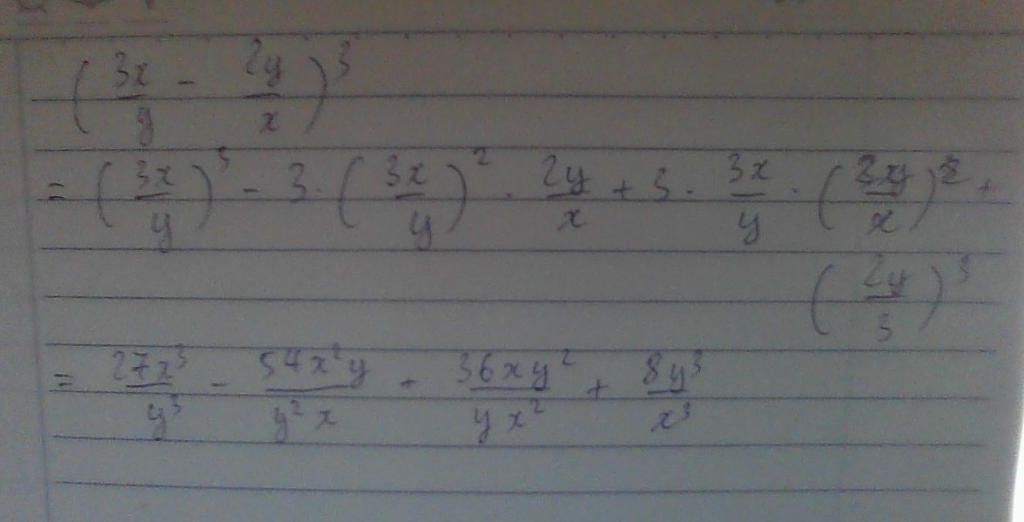 (3x/y - 2y/x)^3
= (3x/y)^3 - 3 · (3x/y)^2 · 2y/x + 3 · 3x/y · (2y/x)^2 +
(2y/3)^3
= 27x^3/y^3 - 54x^2y/y^2x + 36xy^2/yx^2 + 8y^3/x^3